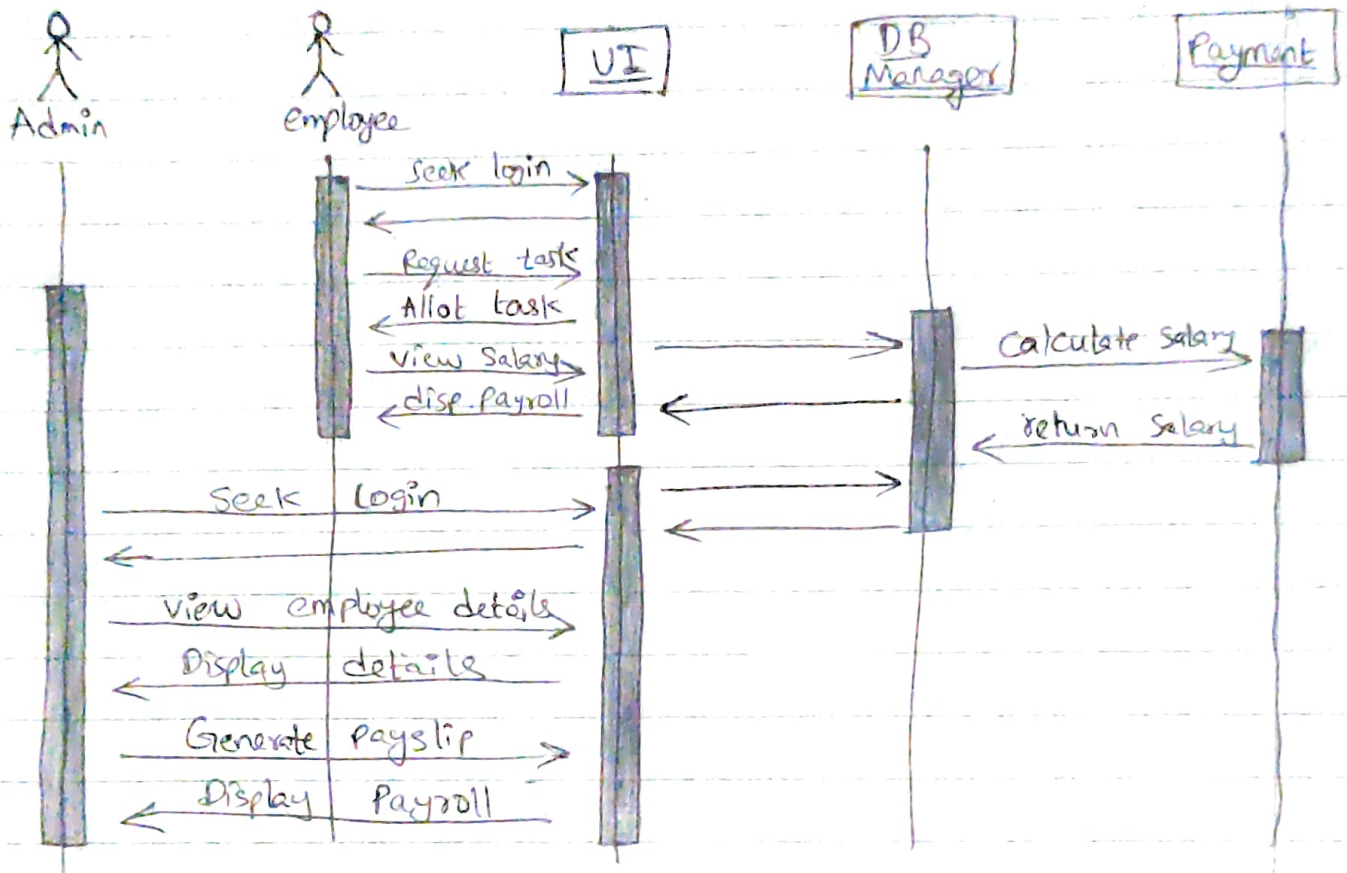 Admin
employee
UI
DB
Manager
Payment
Seek login
Request task
Allot task
View Salary
disp.payroll
Calculate Salary
return Salary
Seek Login
View employee details
Display details
Generate payslip
Display Payroll